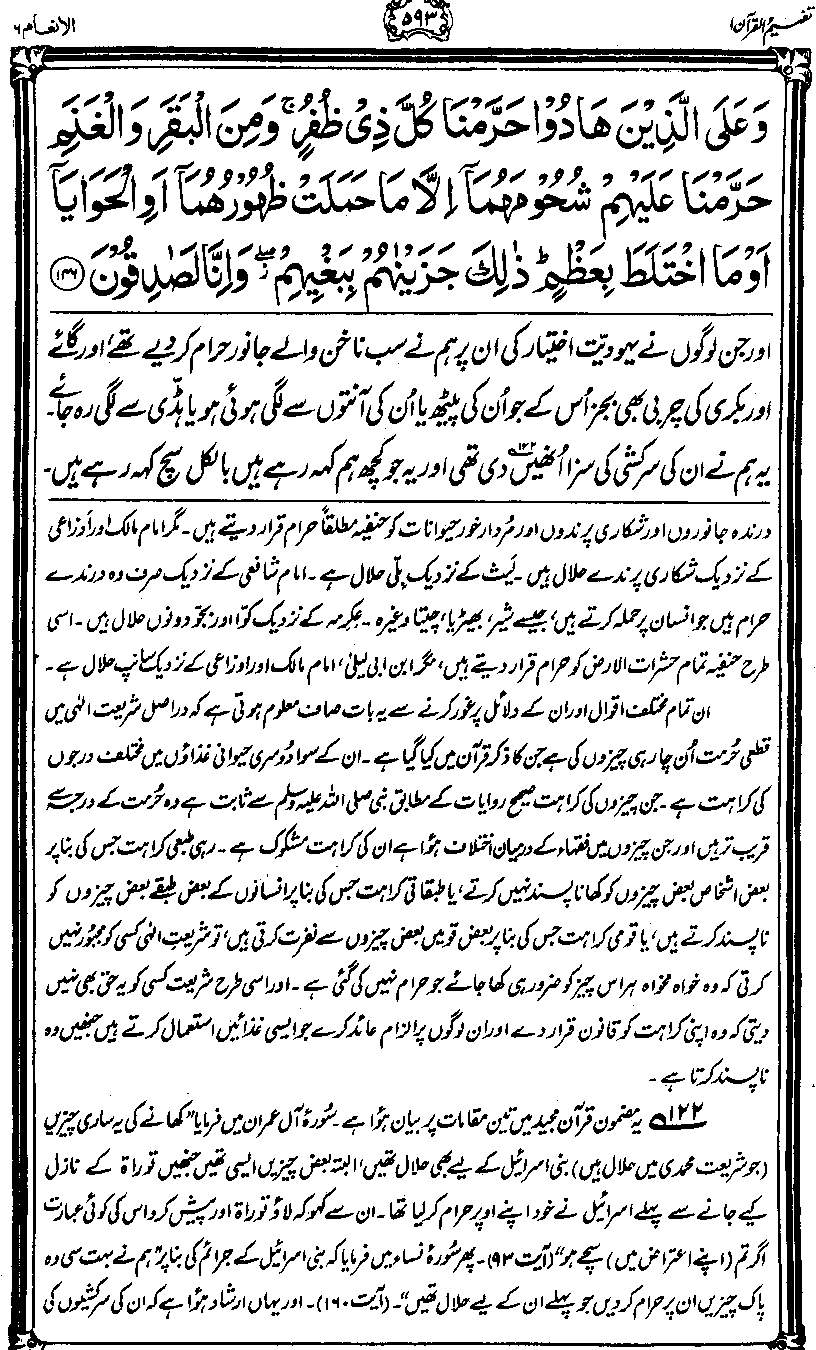 تفہیم القرآن ۱
۵۹۳
الانعام ۶
وَعَلَى الَّذِيْنَ هَادُوْا حَرَّمْنَا كُلَّ ذِيْ ظُفُرٍ ۚ وَمِنَ الْبَقَرِ وَالْغَنَمِ
حَرَّمْنَا عَلَيْهِمْ شُحُوْمَهُمَآ اِلَّا مَا حَمَلَتْ ظُهُوْرُهُمَآ اَوِ الْحَوَايَآ
اَوْ مَا اخْتَلَطَ بِعَظْمٍ ؕ ذٰلِكَ جَزَيْنٰهُمْ بِبَغْيِهِمْ ۖ وَاِنَّا لَصٰدِقُوْنَ ﴿۱۴۶﴾
اور جن لوگوں نے یہودیت اختیار کی ان پر ہم نے سب ناخن والے جانور حرام کر دیے تھے، اور گائے
اور بکری کی چربی بھی بجز اُس کے جو اُن کی پیٹھ یا اُن کی آنتوں سے لگی ہوئی ہو یا ہڈی سے لگی رہ جائے۔
یہ ہم نے ان کی سرکشی کی سزا اُنھیں ۱۲۲ دی تھی اور یہ جو کچھ ہم کہہ رہے ہیں بالکل سچ کہہ رہے ہیں۔
درندہ جانوروں اور شکاری پرندوں اور مُردار خور حیوانات کو حنفیہ مطلقاً حرام قرار دیتے ہیں۔ مگر امام مالک اور اَوزاعی
کے نزدیک شکاری پرندے حلال ہیں۔ لَیث کے نزدیک بِلّی حلال ہے۔ امام شافعی کے نزدیک صرف وہ درندے
حرام ہیں جو انسان پر حملہ کرتے ہیں، جیسے شیر، بھیڑیا، چیتا وغیرہ۔ عِکرِمہ کے نزدیک کوّا اور بجّو دونوں حلال ہیں۔ اسی
طرح حنفیہ تمام حشرات الارض کو حرام قرار دیتے ہیں، مگر ابن ابی لیلیٰ، امام مالک اور اوزاعی کے نزدیک سانپ حلال ہے۔
ان تمام مختلف اقوال اور ان کے دلائل پر غور کرنے سے یہ بات صاف معلوم ہوتی ہے کہ دراصل شریعتِ الٰہی میں
قطعی حُرمت اُن چار ہی چیزوں کی ہے جن کا ذکر قرآن میں کیا گیا ہے۔ ان کے سوا دُوسری حیوانی غذاؤں میں مختلف درجوں
کی کراہت ہے۔ جن چیزوں کی کراہت صحیح روایات کے مطابق نبی صلی اللہ علیہ وسلم سے ثابت ہے وہ حُرمت کے درجے سے
قریب تر ہیں اور جن چیزوں میں فقہاء کے درمیان اختلاف ہوا ہے ان کی کراہت مشکوک ہے۔ رہی طبعی کراہت جس کی بنا پر
بعض اشخاص بعض چیزوں کو کھانا پسند نہیں کرتے، یا طبقاتی کراہت جس کی بنا پر انسانوں کے بعض طبقے بعض چیزوں کو
ناپسند کرتے ہیں، یا قومی کراہت جس کی بنا پر بعض قومیں بعض چیزوں سے نفرت کرتی ہیں، تو شریعتِ الٰہی کسی کو مجبور نہیں
کرتی کہ وہ خواہ مخواہ ہر اس چیز کو ضرور ہی کھا جائے جو حرام نہیں کی گئی ہے۔ اور اسی طرح شریعت کسی کو یہ حق بھی نہیں
دیتی کہ وہ اپنی کراہت کو قانون قرار دے اور ان لوگوں پر الزام عائد کرے جو ایسی غذائیں استعمال کرتے ہیں جنھیں وہ
ناپسند کرتا ہے۔
۱۲۲ یہ مضمون قرآن مجید میں تین مقامات پر بیان ہوا ہے۔ سُورۂ آلِ عمران میں فرمایا ”کھانے کی یہ ساری چیزیں
(جو شریعتِ محمدی میں حلال ہیں) بنی اسرائیل کے لیے بھی حلال تھیں، البتہ بعض چیزیں ایسی تھیں جنھیں توراۃ کے نازل
کیے جانے سے پہلے اسرائیل نے خود اپنے اوپر حرام کر لیا تھا۔ ان سے کہو کہ لاؤ توراۃ اور پیش کرو اس کی کوئی عبارت
اگر تم (اپنے اعتراض میں) سچے ہو“ (آیت ۹۳)۔ پھر سُورۂ نساء میں فرمایا کہ بنی اسرائیل کے جرائم کی بنا پر ”ہم نے بہت سی وہ
پاک چیزیں ان پر حرام کر دیں جو پہلے ان کے لیے حلال تھیں“۔ (آیت ۱۶۰)۔ اور یہاں ارشاد ہوا ہے کہ ان کی سرکشیوں کی